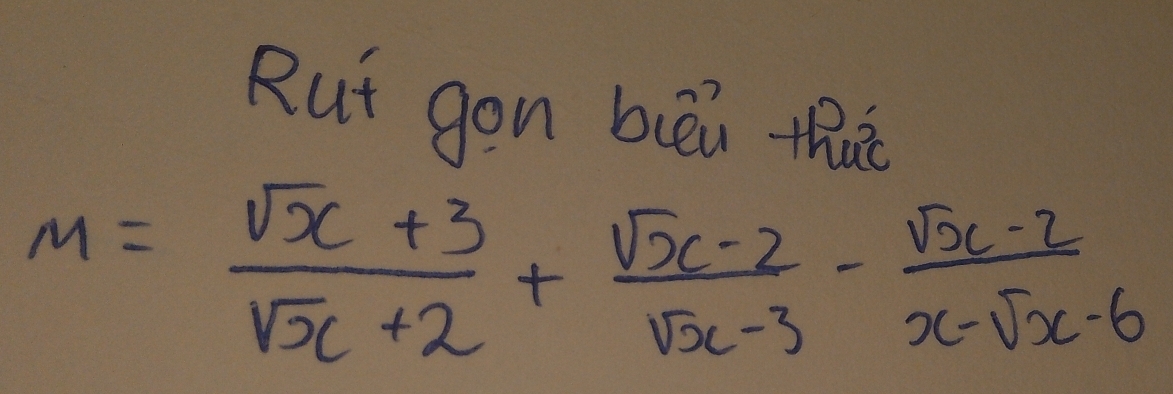 Rút gọn biểu thức
M = \frac{\sqrt{x} + 3}{\sqrt{x} + 2} + \frac{\sqrt{x} - 2}{\sqrt{x} - 3} - \frac{\sqrt{x} - 2}{x - \sqrt{x} - 6}